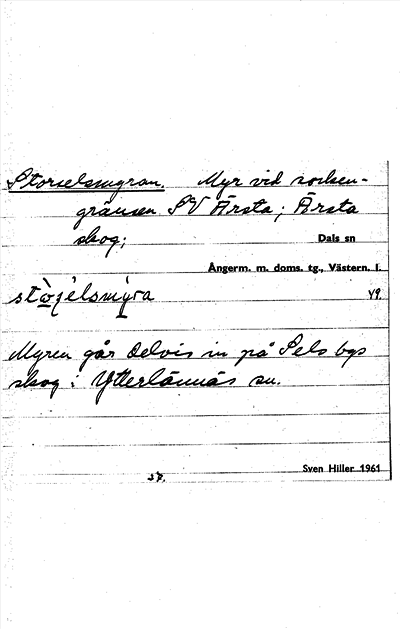 Storselsmyran. Myr vid socken-
gränsen SV Ärsta; Ärsta
skog;
Dals sn
Ångerm. m. doms. tg., Västern. l.
Y9.
Myren går delvis in på Sels bys
skog i Ytterlännäs sn.
Sven Hiller 1961